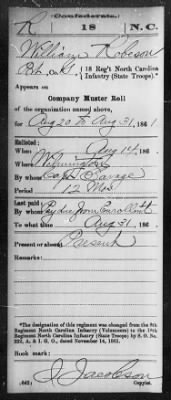 Confederate.
R 18 N.C.
William Robeson
18 Reg't North Carolina
Infantry (State Troops).*
Appears on
Company Muster Roll
of the organization named above,
for Aug 20 to Aug 31, 186
Enlisted:
When Aug 1st, 186
Where Wilmington
By whom Capt Savage
Period 12 Mos
Last paid:
By whom Pay due from Enrollmt
To what time Aug 31, 186
Present or absent Present
Remarks:
*The designation of this regiment was changed from the 8th
Regiment North Carolina Infantry (Volunteers) to the 18th
Regiment North Carolina Infantry (State Troops) by S. O. No.
222, A. & I. G. O., dated November 14, 1861.
Book mark:
J Jacobson
(642) Copyist.